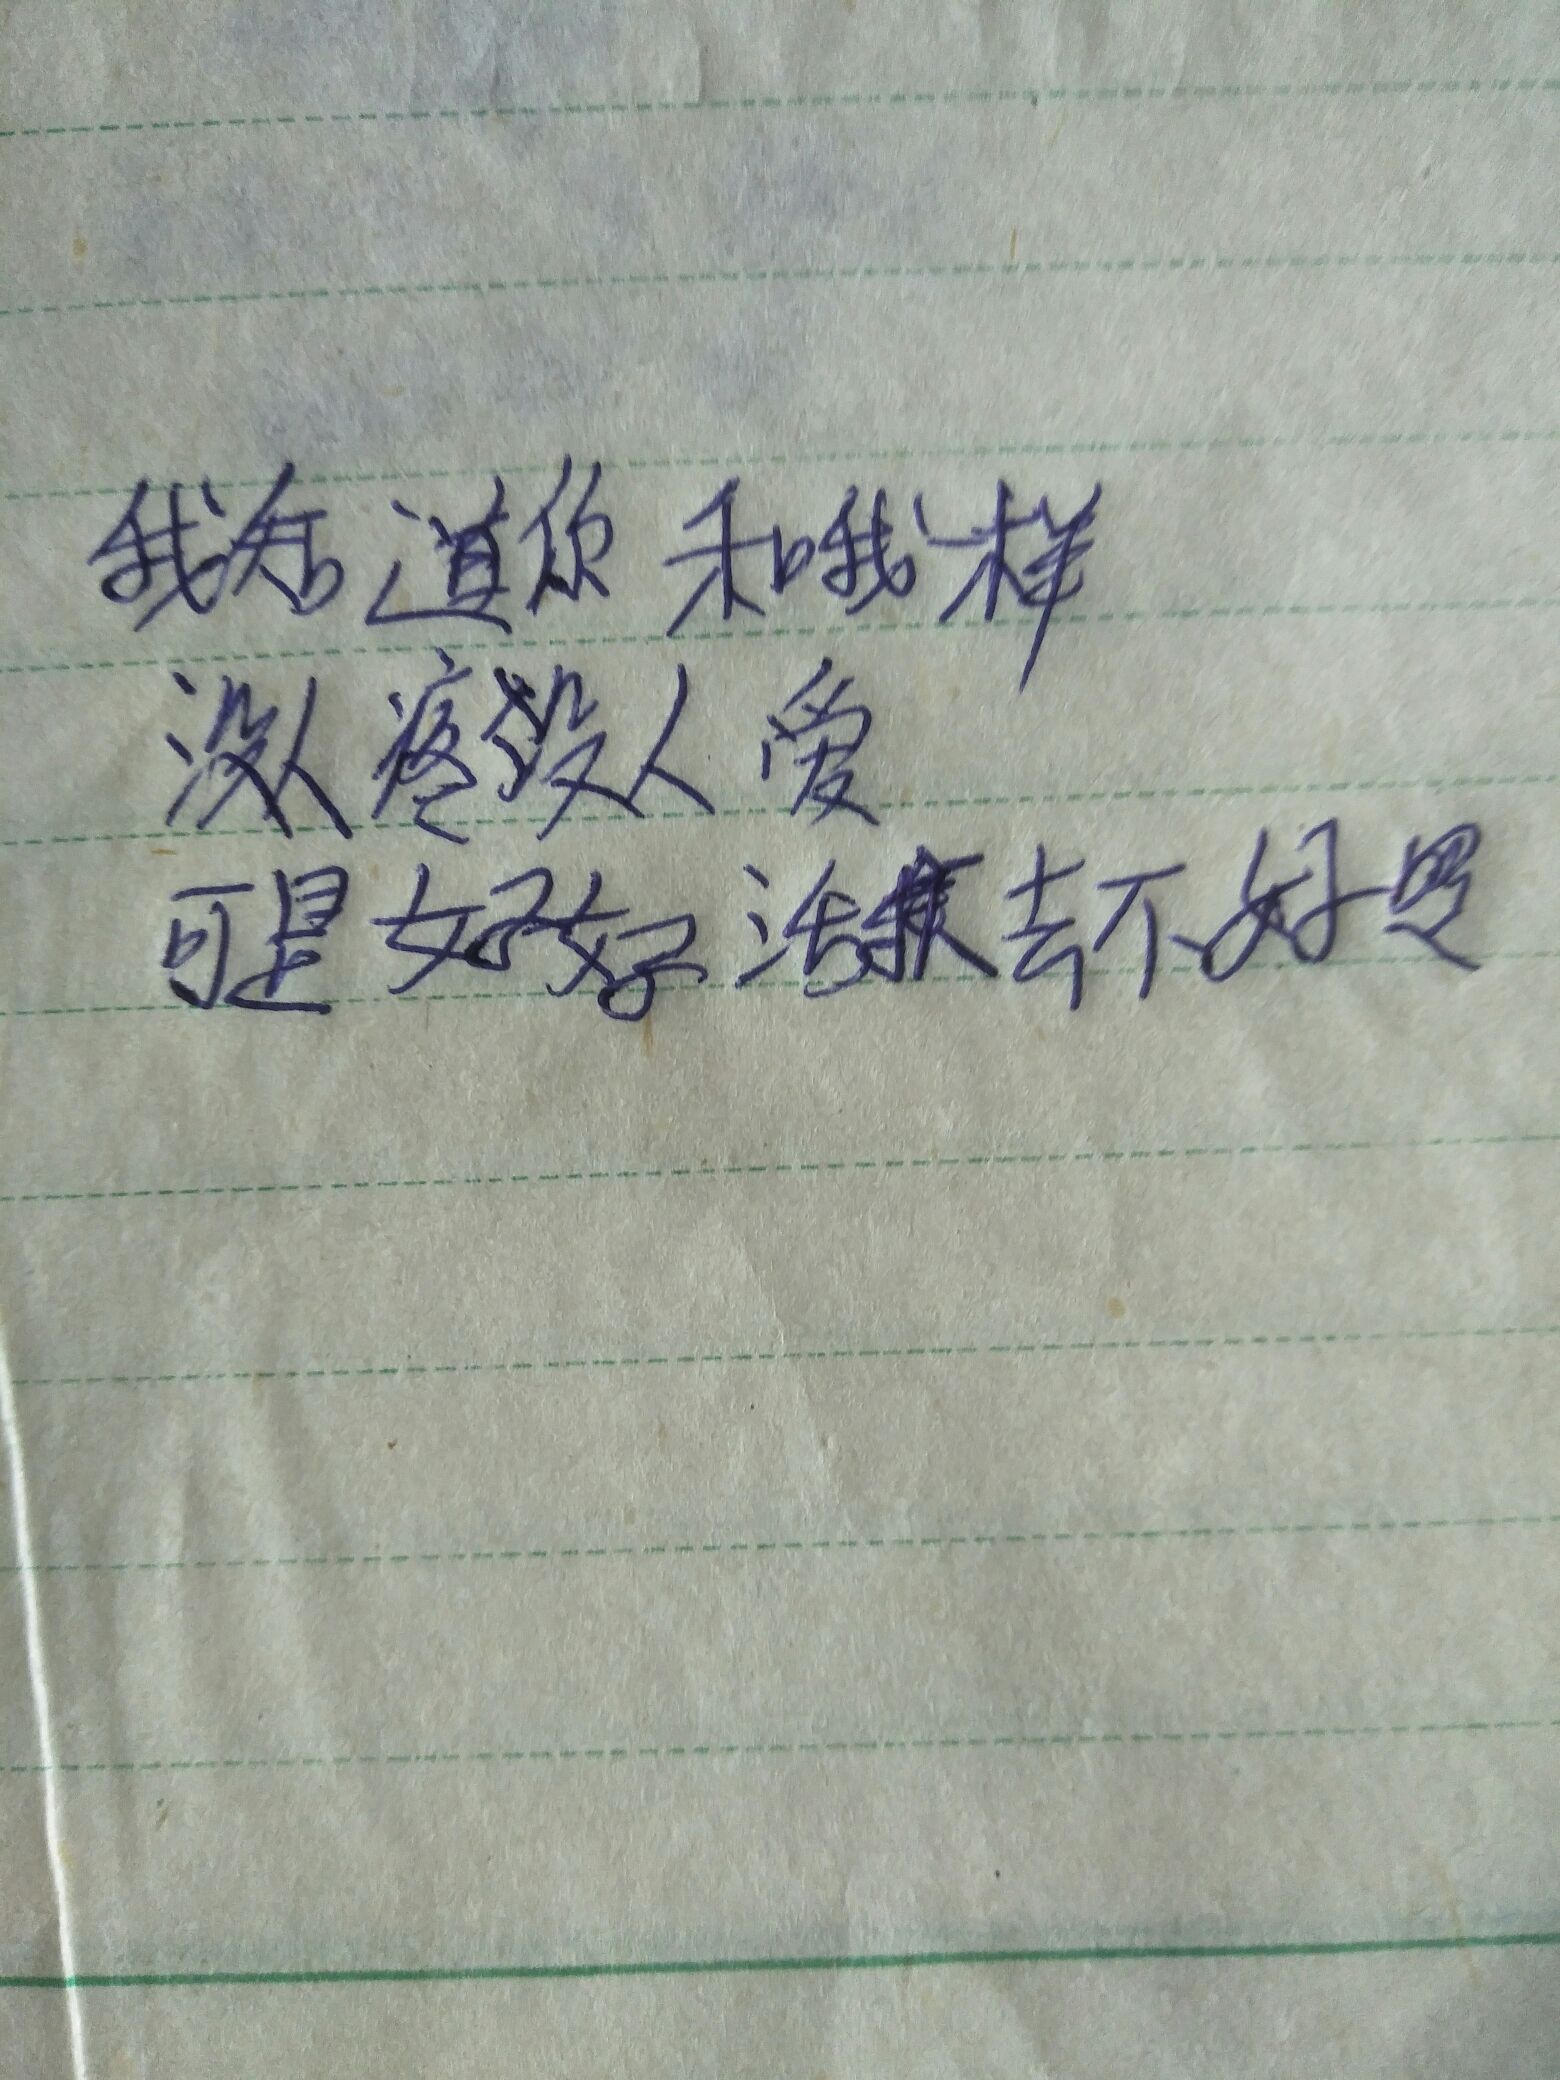 我知道你和我一样
没人疼没人爱
可是好好活下去不好吗